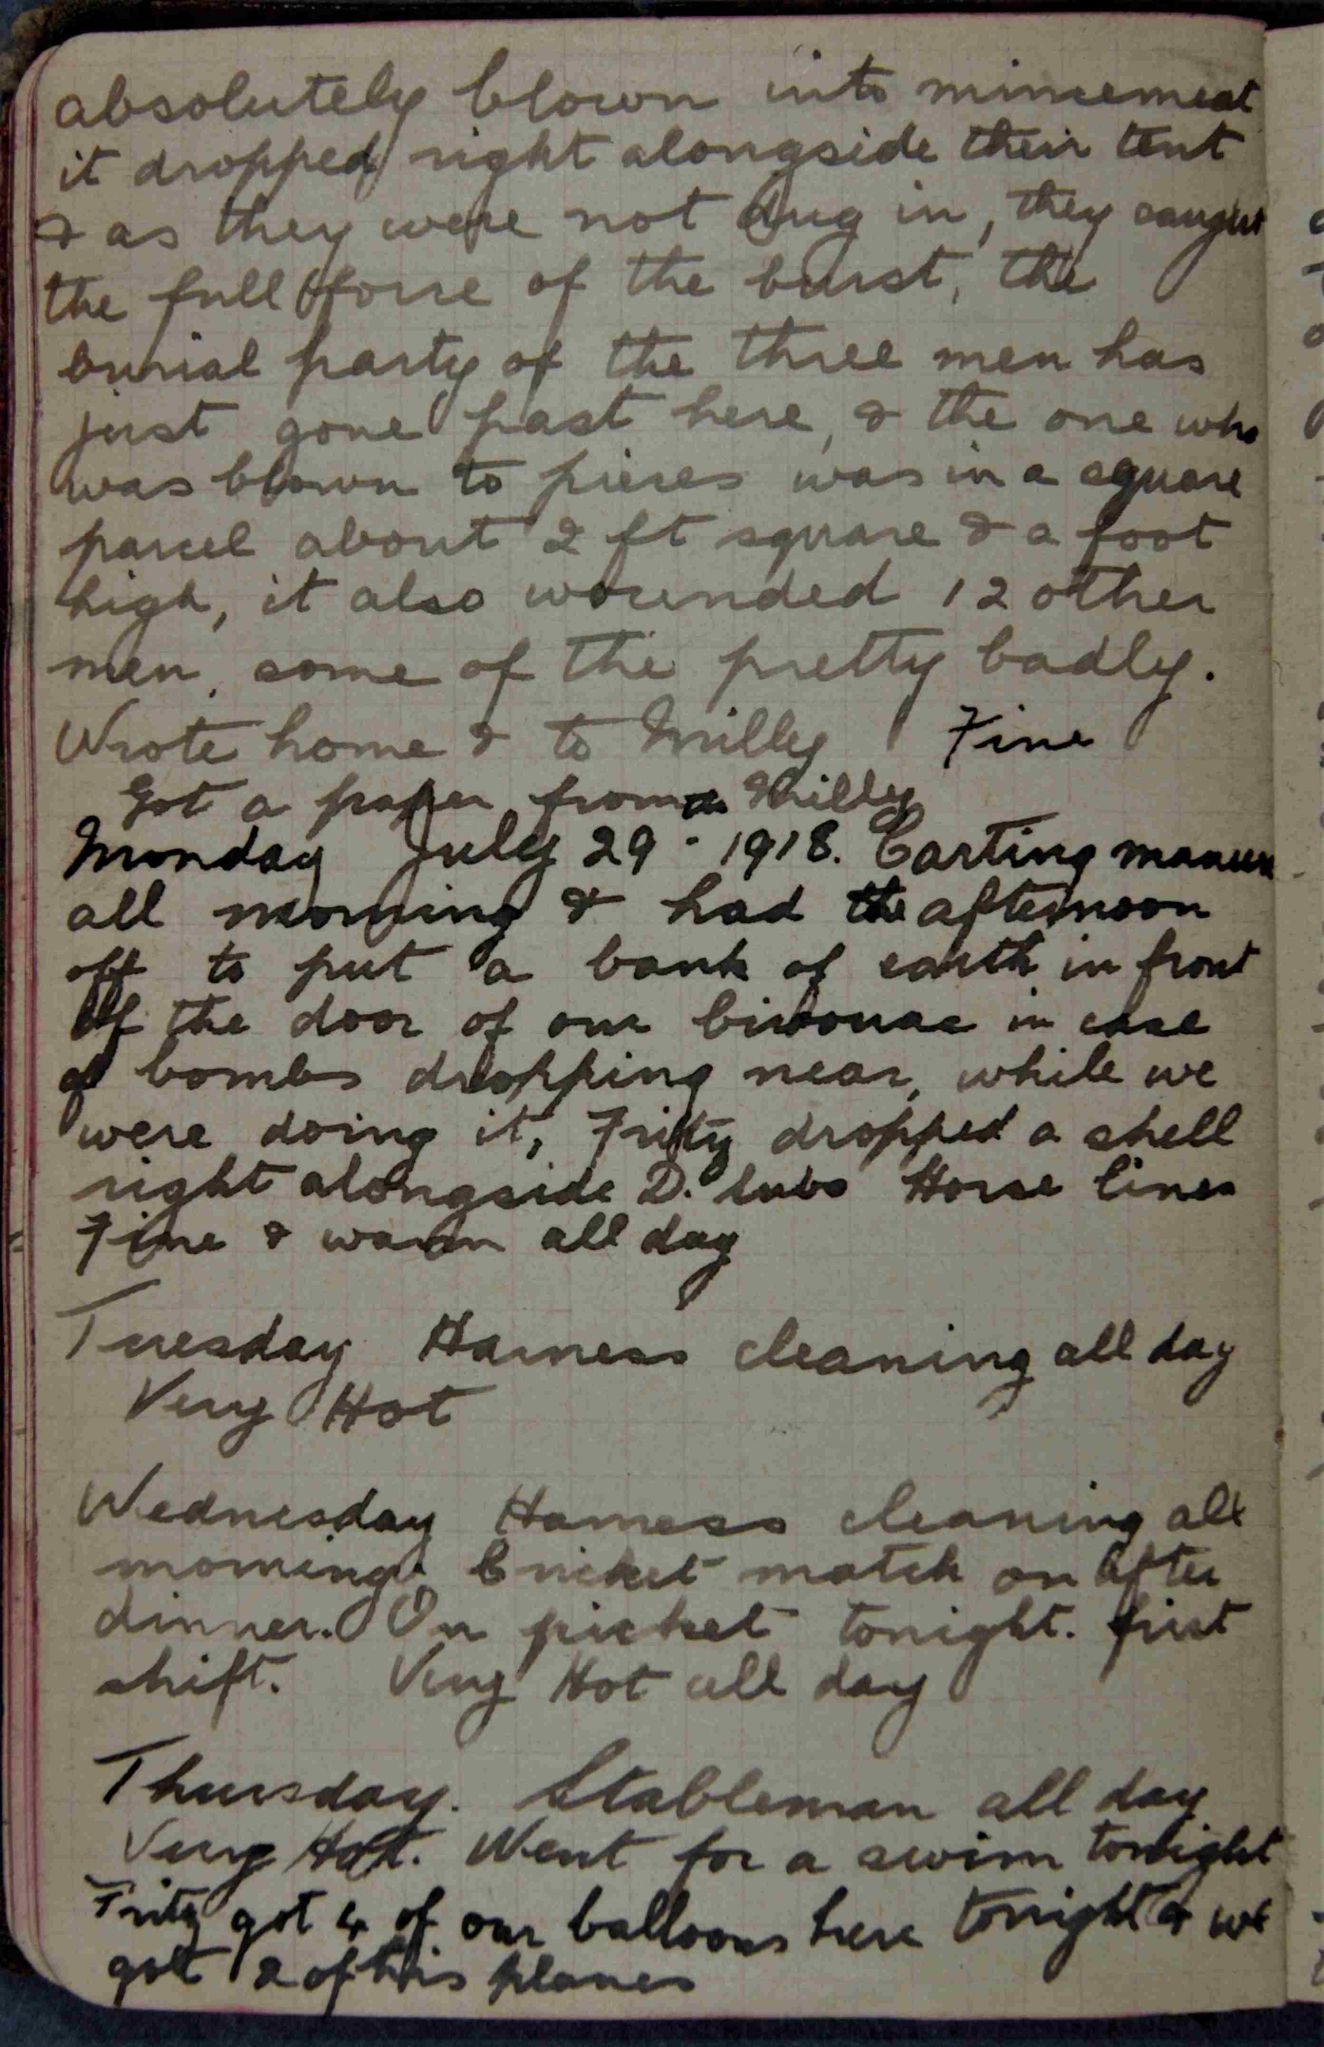 absolutely blown into mincemeat
it dropped right alongside their tent
& as they were not dug in, they caught
the full force of the burst, the
burial party of the three men has
just gone past here, & the one who
was blown to pieces was in a square
parcel about 2 ft square & a foot
high, it also wounded 12 other
men, some of the pretty badly.
Wrote home & to Milly Fine
Got a paper from Milly
Monday July 29 - 1918. Carting manure
all morning & had the afternoon
off to put a bank of earth in front
of the door of our bivouac in case
of bombs dropping near, while we
were doing it, Fritz dropped a shell
right alongside D. Subs Horse lines
Fine & warm all day
Tuesday Harness cleaning all day
Very Hot
Wednesday Harness cleaning all
morning. Cricket match on after
dinner. On picket tonight. first
shift. Very Hot all day
Thursday. Stableman all day
Very Hot. Went for a swim tonight
Fritz got 4 of our balloons here tonight & we
got 2 of his planes